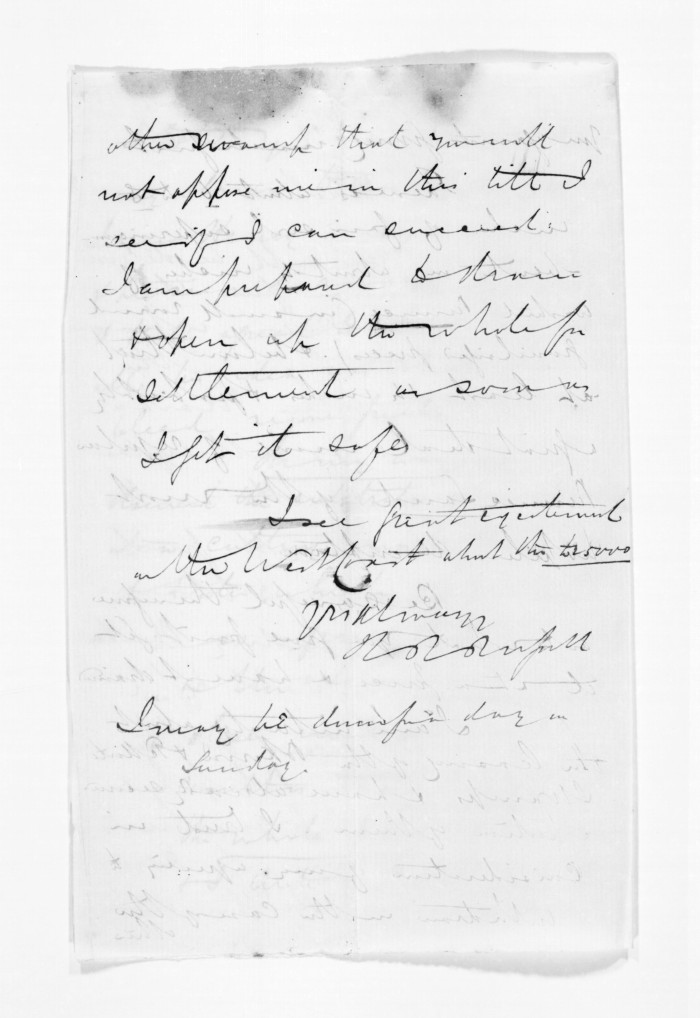 other swamp that you will
not oppose me in this till I
see if I can succeed.
I am prepared to drain
& open up the whole for
settlement as soon as
I get it safe
I see great excitement
on the West Coast about the £25000
Yrs always
H R Russell
I may be down for a day on
Sunday.